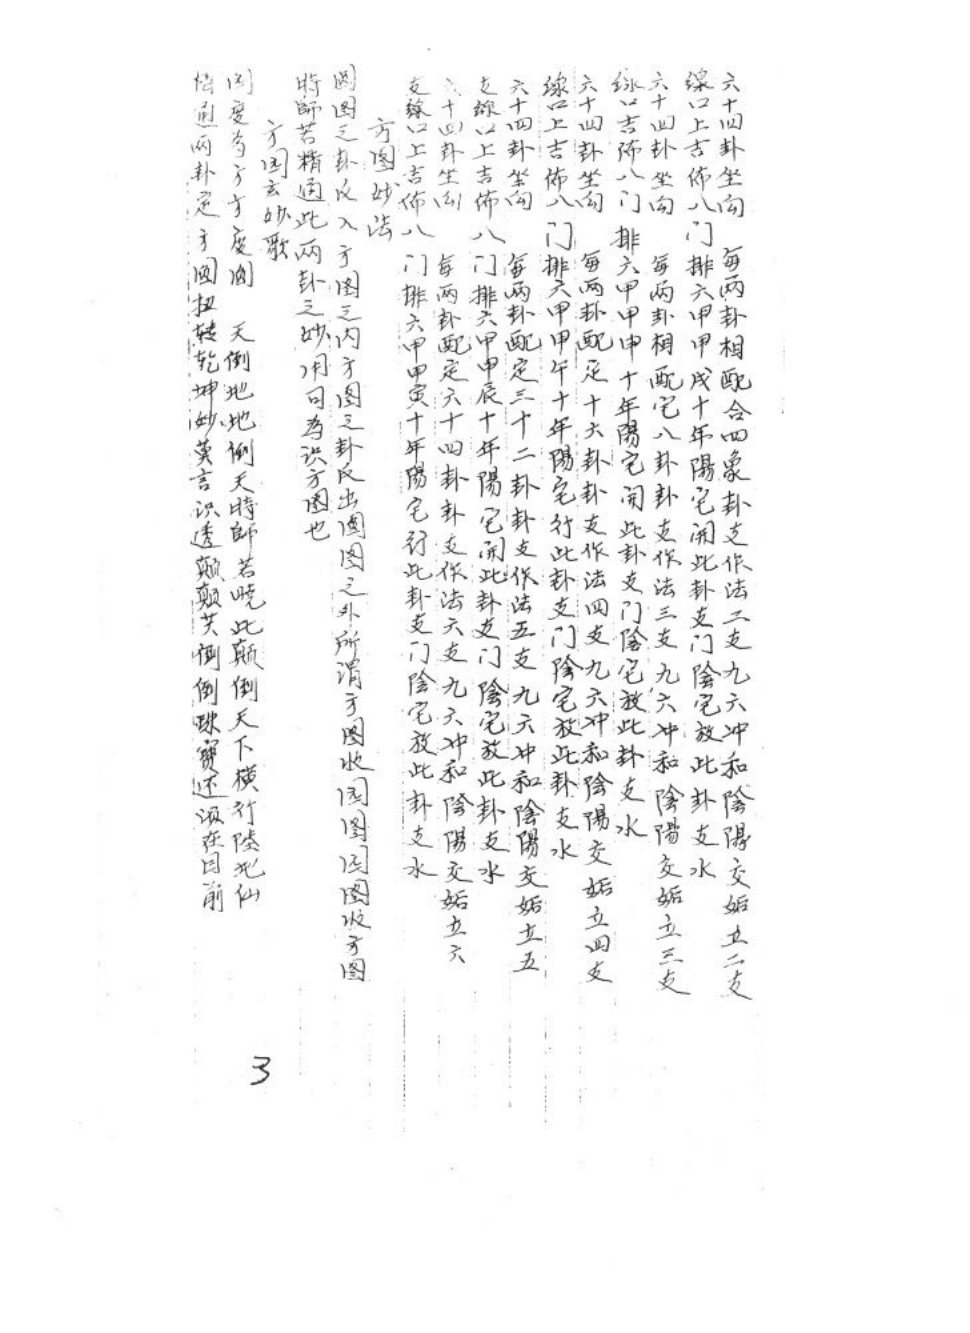 六十四卦坐向 每两卦相配合四象卦支作法二支九六冲和陰陽交姤立二支
線口上吉佈八门排六甲甲戌十年陽宅開此卦支门陰宅放此卦支水
六十四卦坐向 每两卦相配定八卦卦支作法三支九六冲和陰陽交姤立三支
線口吉佈八门排六甲甲申十年陽宅開此卦支门陰宅放此卦支水
六十四卦坐向 每两卦配定十六卦卦支作法四支九六冲和陰陽交姤立四支
線口上吉佈八门排六甲甲午十年陽宅行此卦支门陰宅放此卦支水
六十四卦坐向 每两卦配定三十二卦卦支作法五支九六冲和陰陽交姤立五
支線口上吉佈八门排六甲甲辰十年陽宅開此卦支门陰宅放此卦支水
六十四卦坐向 每两卦配定六十四卦卦支作法六支九六冲和陰陽交姤立六
支線口上吉佈八门排六甲甲寅十年陽宅行此卦支门陰宅放此卦支水
方图妙法
圆图之卦反入方图之内方图之卦反出圆图之外所谓方图收圆图圆图收方图
時師若精通此两卦之妙用可为识方图也
方图玄妙歌
圆度为方方度圆 天倒地地倒天時師若晓此颠倒天下横行陸地仙
悟通两卦定方圆扭转乾坤妙莫言识透颠颠倒倒珠寶还须在目前
3